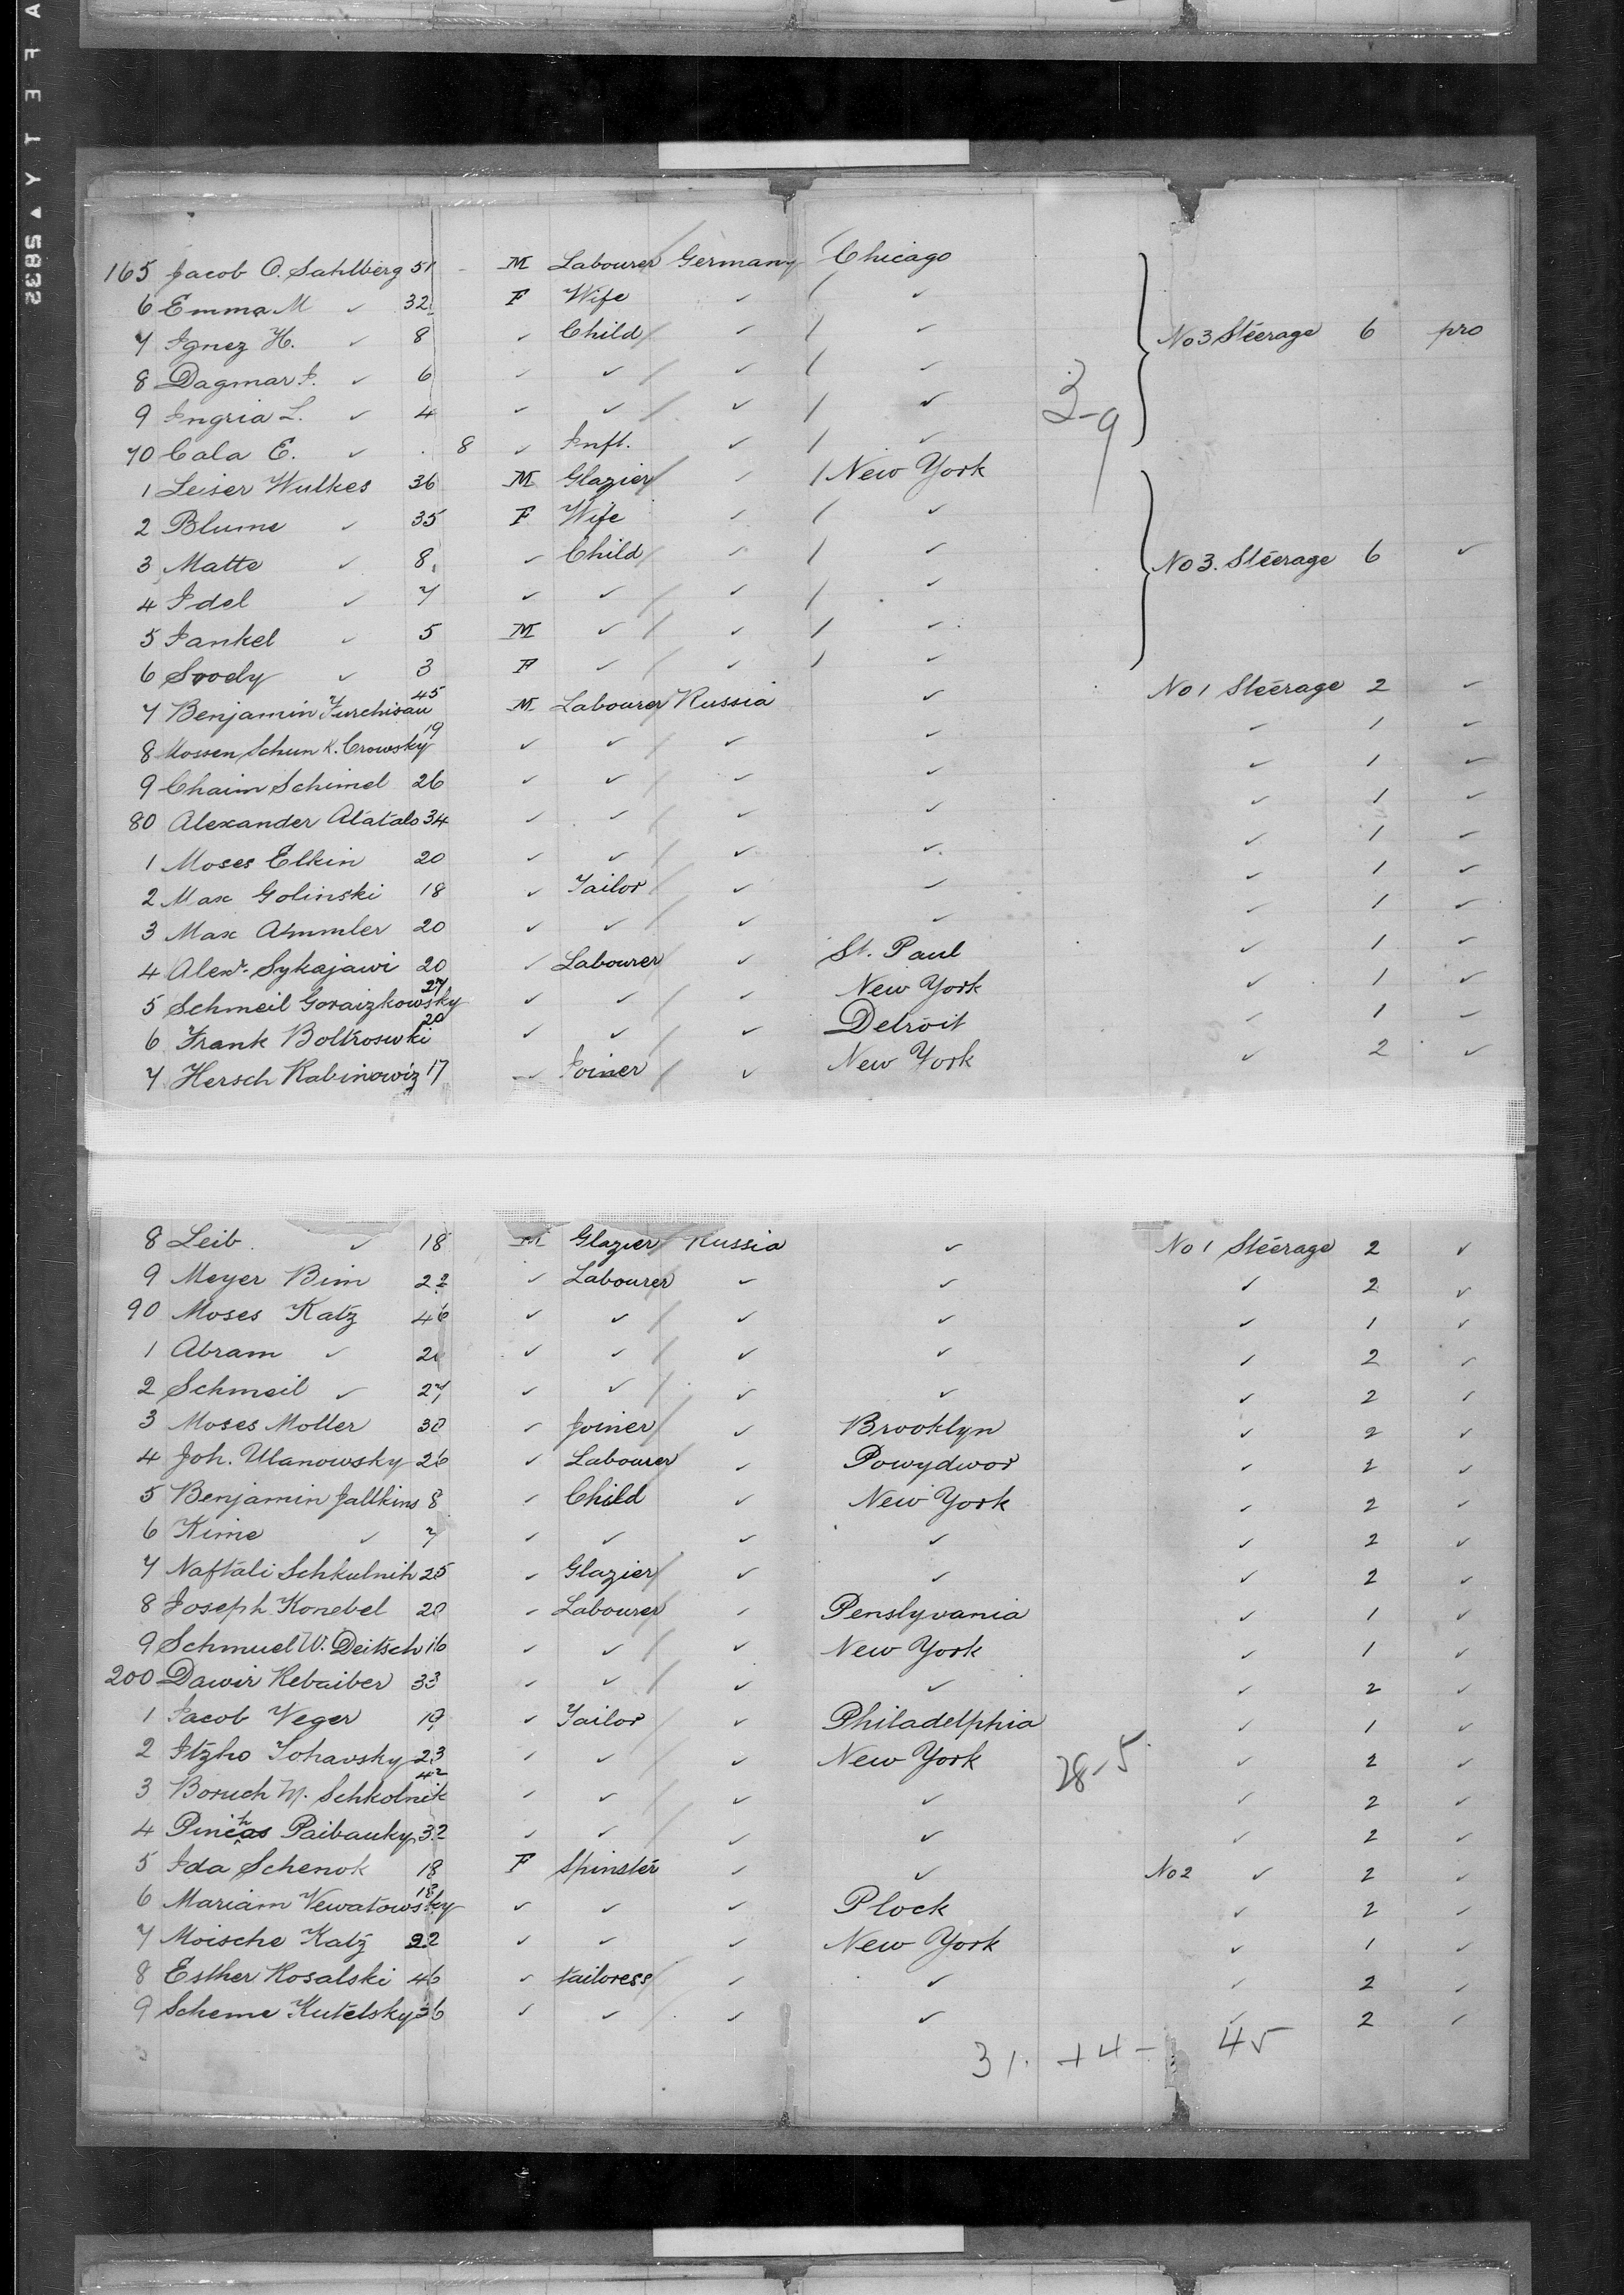 SAFETY ▲ 5832
165 Jacob O. Sahlberg 51 - M Labourer Germany Chicago
6 Emma M ✓ 32 F Wife ✓ / ✓
7 Ignez H. ✓ 8 ✓ Child ✓ / ✓ No 3 Steerage 6 pro
8 Dagmar I. ✓ 6 ✓ ✓ ✓ / ✓
9 Ingria L. ✓ 4 ✓ ✓ ✓ / ✓ 3-9
70 Cala E. ✓ 8 ✓ Inft. ✓ / ✓
1 Leiser Wulkes 36 M Glazier ✓ / New York
2 Blume ✓ 35 F Wife ✓ / ✓
3 Matte ✓ 8 ✓ Child ✓ / ✓ No 3. Steerage 6 ✓
4 Idel ✓ 7 ✓ ✓ ✓ / ✓
5 Jankel ✓ 5 M ✓ ✓ / ✓
6 Srody ✓ 3 F ✓ ✓ / ✓
7 Benjamin Furchisau 45 M Labourer Russia ✓ No 1 Steerage 2 ✓
8 Mossen Schun K. Crowsky 19 ✓ ✓ ✓ ✓ ✓ 1 ✓
9 Chaim Schimel 26 ✓ ✓ ✓ ✓ ✓ 1 ✓
80 Alexander Alatalo 34 ✓ ✓ ✓ ✓ ✓ 1 ✓
1 Moses Elkin 20 ✓ ✓ ✓ ✓ ✓ 1 ✓
2 Max Golinski 18 ✓ Tailor ✓ ✓ ✓ 1 ✓
3 Max Ammler 20 ✓ ✓ ✓ ✓ ✓ 1 ✓
4 Alexr. Sykajawi 20 ✓ Labourer ✓ St. Paul ✓ 1 ✓
5 Schmeil Goraizkowsky 27 ✓ ✓ ✓ New York ✓ 1 ✓
6 Frank Boltroswki 20 ✓ ✓ ✓ Detroit ✓ 1 ✓
7 Hersch Rabinowiz 17 ✓ Joiner ✓ New York ✓ 2 ✓
8 Leib ✓ 18 M Glazier Russia ✓ No 1 Steerage 2 ✓
9 Meyer Bim 22 ✓ Labourer ✓ ✓ ✓ 2 ✓
90 Moses Katz 46 ✓ ✓ ✓ ✓ ✓ 1 ✓
1 Abram ✓ ✓ ✓ ✓ ✓ ✓ 2 ✓
2 Schmeil ✓ 27 ✓ ✓ ✓ ✓ ✓ 2 ✓
3 Moses Moller 30 ✓ Joiner ✓ Brooklyn ✓ 2 ✓
4 Joh. Ulanowsky 26 ✓ Labourer ✓ Powydwor ✓ 2 ✓
5 Benjamin Jallkins 8 ✓ Child ✓ New York ✓ 2 ✓
6 Kime ✓ 7 ✓ ✓ ✓ ✓ ✓ 2 ✓
7 Naftali Schkulnih 25 ✓ Glazier ✓ ✓ ✓ 2 ✓
8 Joseph Konebel 20 ✓ Labourer ✓ Penslyvania ✓ 1 ✓
9 Schmuel W. Deitsch 16 ✓ ✓ ✓ New York ✓ 1 ✓
200 Dawir Rebaiber 33 ✓ ✓ ✓ ✓ ✓ 2 ✓
1 Jacob Veger 19 ✓ Tailor ✓ Philadelphia ✓ 1 ✓
2 Itzho Tohavsky 23 ✓ ✓ ✓ New York 28-5 ✓ 2 ✓
3 Boruch M. Schkolnik 42 ✓ ✓ ✓ ✓ ✓ 2 ✓
4 Pinchas Paibauky 32 ✓ ✓ ✓ ✓ ✓ 2 ✓
5 Ida Schenok 18 F Spinster ✓ ✓ No 2 ✓ 2 ✓
6 Mariam Vewatowsky 18 ✓ ✓ ✓ Plock ✓ 2 ✓
7 Moische Katz 22 ✓ ✓ ✓ New York ✓ 1 ✓
8 Esther Rosalski 46 ✓ tailoress ✓ ✓ ✓ 2 ✓
9 Scheme Kutelsky 36 ✓ ✓ ✓ ✓ ✓ 2 ✓
31. + 4 - 45